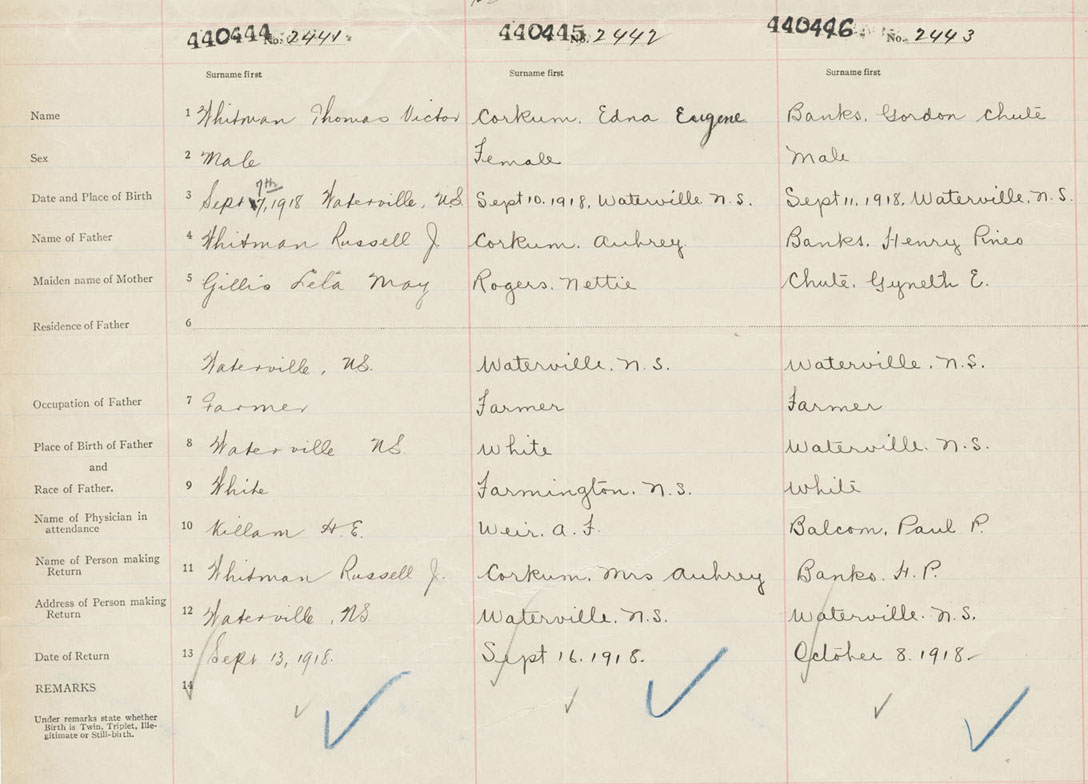 440444 No. 2441. 440445 No. 2442 440446. No. 2443
Surname first Surname first Surname first
Name 1 Whitman Thomas Victor Corkum, Edna Eugene Banks, Gordon Chute
Sex 2 Male Female Male
7th
Date and Place of Birth 3 Sept 7, 1918 Waterville, NS Sept 10. 1918, Waterville N.S. Sept 11, 1918, Waterville, N.S.
Name of Father 4 Whitman Russell J. Corkum, Aubrey. Banks. Henry Pineo
Maiden name of Mother 5 Gillis Lela May Rogers, Nettie Chute, Gyneth E.
Residence of Father 6
Waterville, NS. Waterville. N.S. Waterville. N.S.
Occupation of Father 7 Farmer Farmer Farmer
Place of Birth of Father 8 Waterville NS. White Waterville. N.S.
and
Race of Father. 9 White Farmington. N.S. White
Name of Physician in
attendance 10 Killam H.E. Weir. A.F. Balcom, Paul P.
Name of Person making
Return 11 Whitman Russell J. Corkum, Mrs Aubrey Banks. H.P.
Address of Person making
Return 12 Waterville, NS Waterville. N.S. Waterville. N.S.
Date of Return 13 Sept 13, 1918. Sept 16. 1918. October 8. 1918.
REMARKS 14
Under remarks state whether
Birth is Twin, Triplet, Ille-
gitimate or Still-birth.